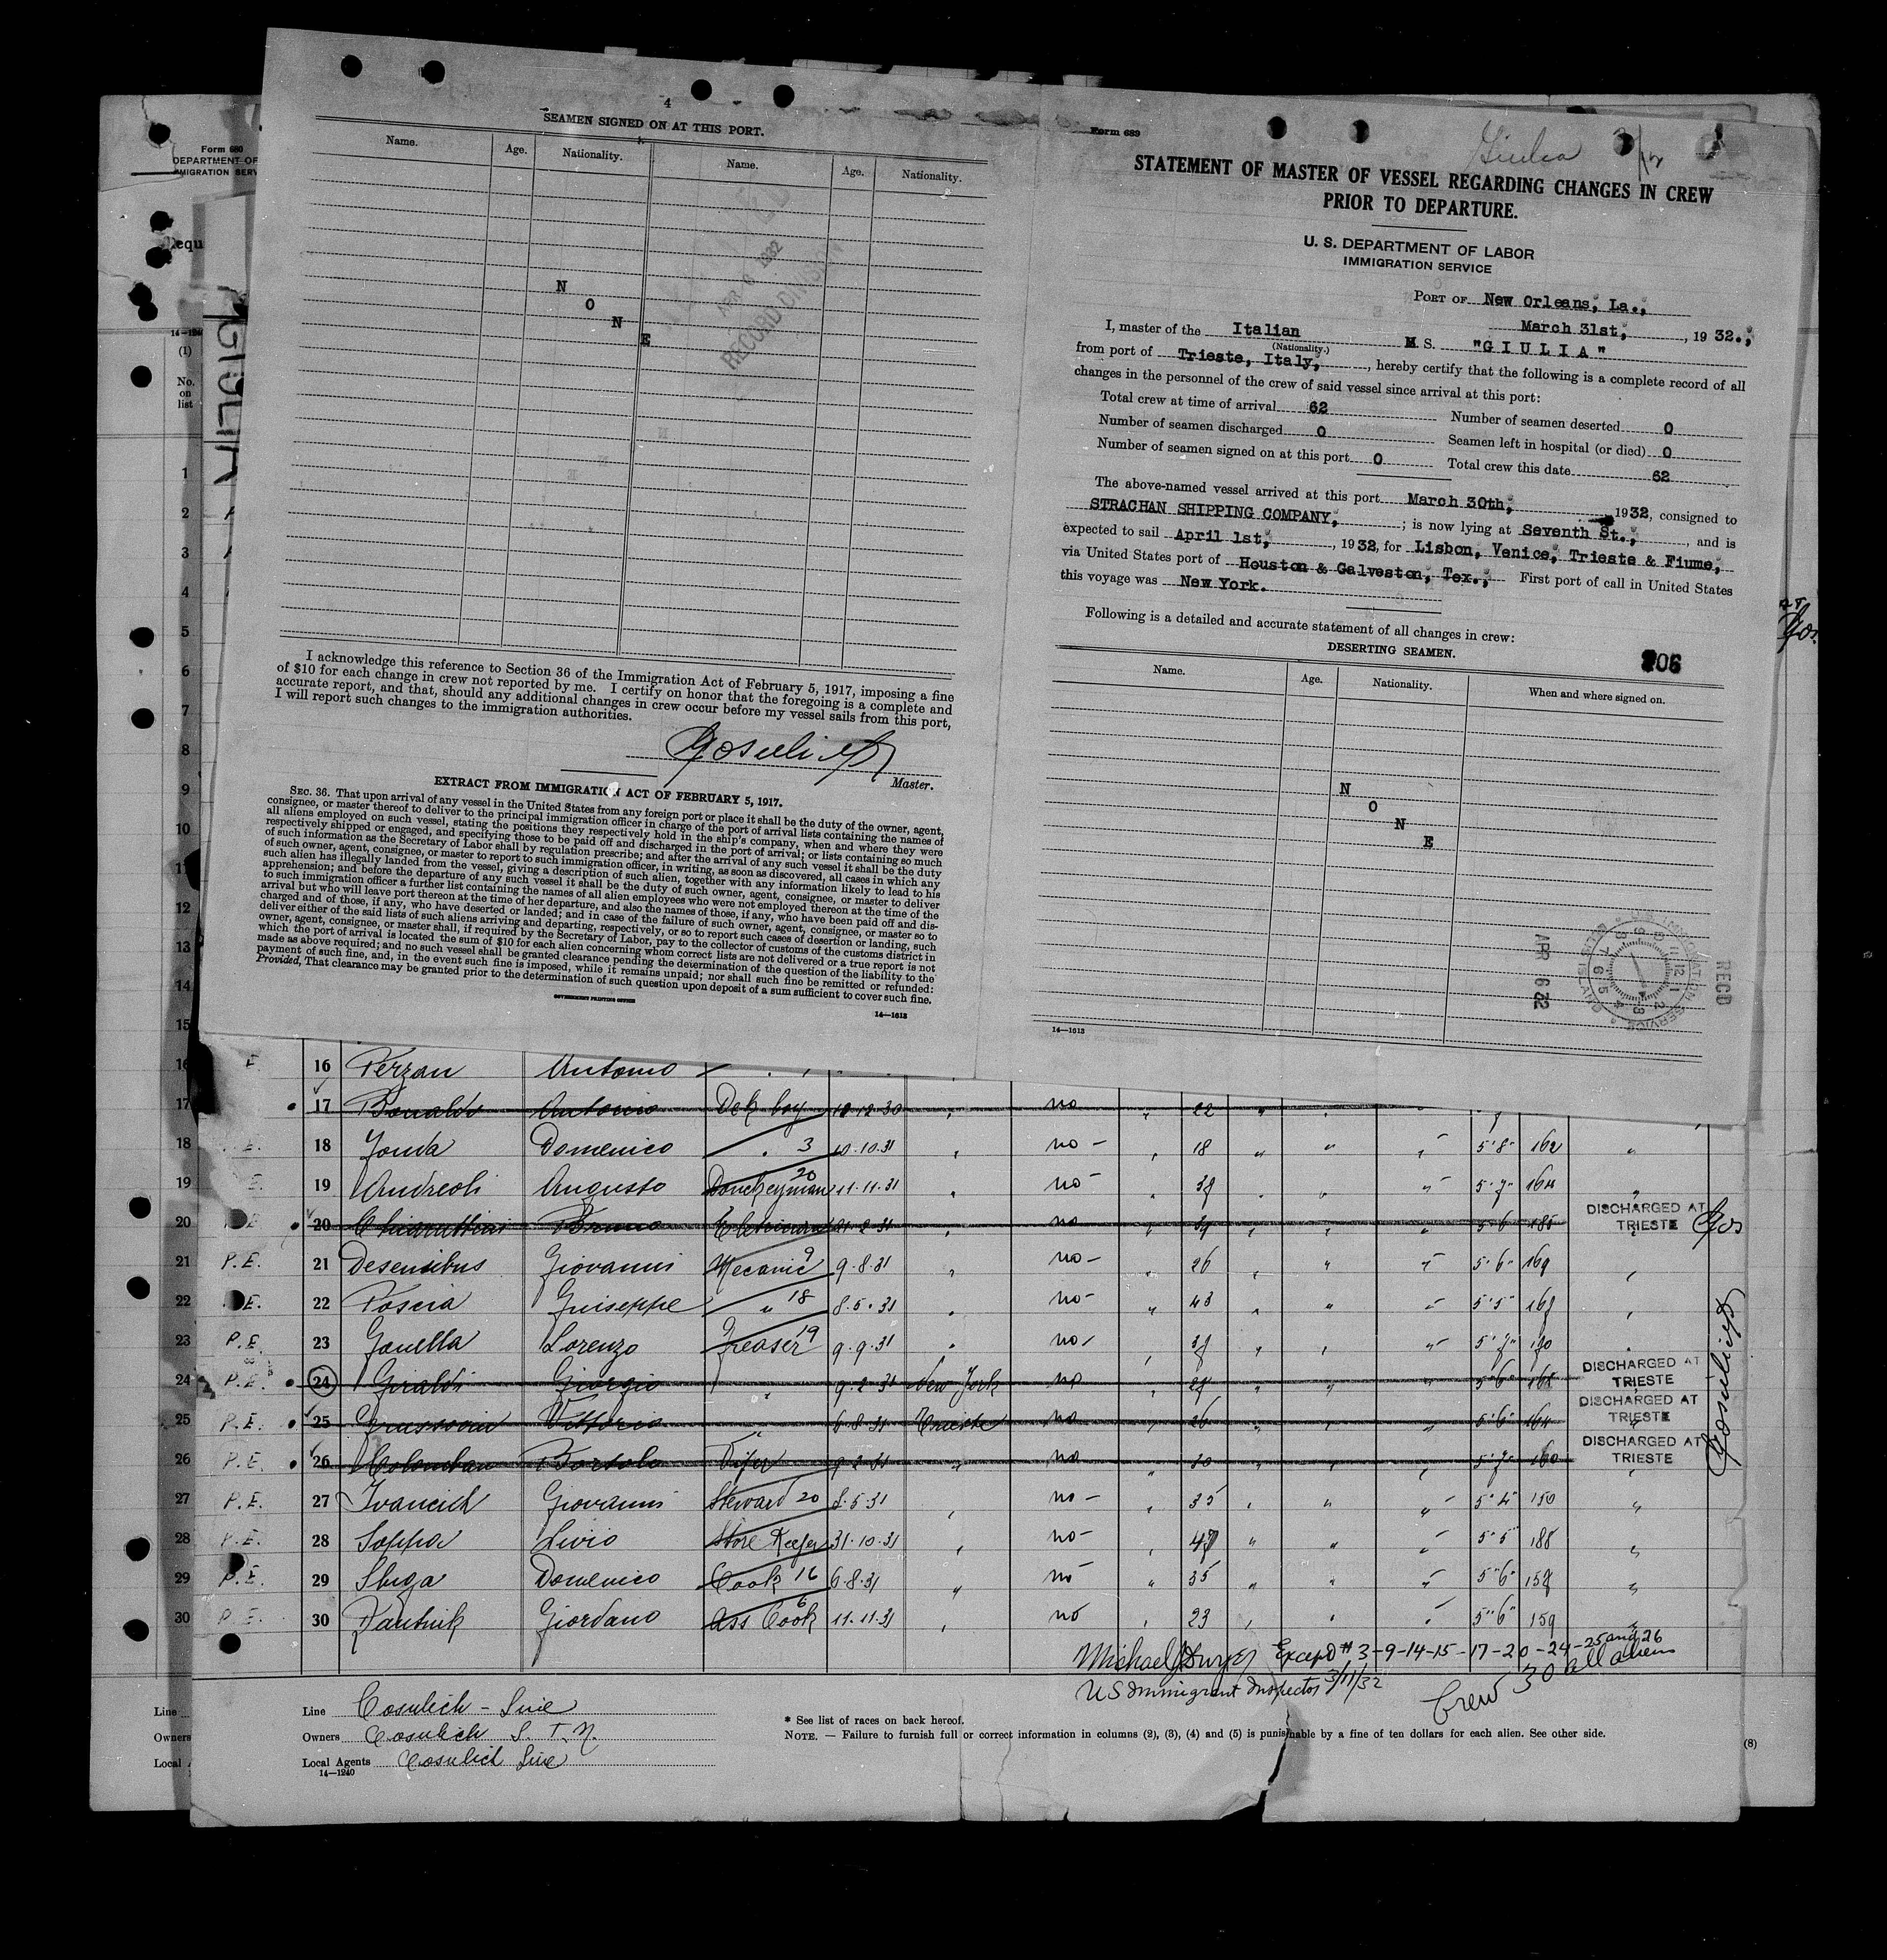 4
SEAMEN SIGNED ON AT THIS PORT.
Name. Age. Nationality. Name. Age. Nationality.
N
O
N
E
APR 6 1932
RECORD DIVISION
I acknowledge this reference to Section 36 of the Immigration Act of February 5, 1917, imposing a fine
of $10 for each change in crew not reported by me. I certify on honor that the foregoing is a complete and
accurate report, and that, should any additional changes in crew occur before my vessel sails from this port,
I will report such changes to the immigration authorities.
Master.
EXTRACT FROM IMMIGRATION ACT OF FEBRUARY 5, 1917.
SEC. 36. That upon arrival of any vessel in the United States from any foreign port or place it shall be the duty of the owner, agent,
consignee, or master thereof to deliver to the principal immigration officer in charge of the port of arrival lists containing the names of
all aliens employed on such vessel, stating the positions they respectively hold in the ship's company, when and where they were
respectively shipped or engaged, and specifying those to be paid off and discharged in the port of arrival; or lists containing so much
of such information as the Secretary of Labor shall by regulation prescribe; and after the arrival of any such vessel it shall be the duty
of such owner, agent, consignee, or master to report to such immigration officer, in writing, as soon as discovered, all cases in which any
such alien has illegally landed from the vessel, giving a description of such alien, together with any information likely to lead to his
apprehension; and before the departure of any such vessel it shall be the duty of such owner, agent, consignee, or master to deliver
to such immigration officer a further list containing the names of all alien employees who were not employed thereon at the time of the
arrival but who will leave port thereon at the time of her departure, and also the names of those, if any, who have been paid off and dis-
charged and of those, if any, who have deserted or landed; and in case of the failure of such owner, agent, consignee, or master so to
deliver either of the said lists of such aliens arriving and departing, respectively, or so to report such cases of desertion or landing, such
owner, agent, consignee, or master shall, if required by the Secretary of Labor, pay to the collector of customs of the customs district in
which the port of arrival is located the sum of $10 for each alien concerning whom correct lists are not delivered or a true report is not
made as above required; and no such vessel shall be granted clearance pending the determination of the question of the liability to the
payment of such fine, and, in the event such fine is imposed, while it remains unpaid; nor shall such fine be remitted or refunded:
Provided, That clearance may be granted prior to the determination of such question upon deposit of a sum sufficient to cover such fine.
GOVERNMENT PRINTING OFFICE
14—1613
Form 689
Giulia
STATEMENT OF MASTER OF VESSEL REGARDING CHANGES IN CREW
PRIOR TO DEPARTURE.
U. S. DEPARTMENT OF LABOR
IMMIGRATION SERVICE
PORT OF New Orleans, La.,
March 31st, , 1932.,
I, master of the Italian M S. "GIULIA"
(Nationality.)
from port of Trieste, Italy, , hereby certify that the following is a complete record of all
changes in the personnel of the crew of said vessel since arrival at this port:
Total crew at time of arrival 62 Number of seamen deserted 0
Number of seamen discharged 0 Seamen left in hospital (or died) 0
Number of seamen signed on at this port 0 Total crew this date 62
The above-named vessel arrived at this port March 30th, 1932, consigned to
STRACHAN SHIPPING COMPANY, ; is now lying at Seventh St., , and is
expected to sail April 1st, , 1932, for Lisbon, Venice, Trieste & Fiume,
via United States port of Houston & Galveston, Tex., First port of call in United States
this voyage was New York.
Following is a detailed and accurate statement of all changes in crew:
DESERTING SEAMEN.
Name. Age. Nationality. When and where signed on.
N
O
N
E
RECD
APR 6 32
IMMIGRATION SERVICE
14—1613
Form 680
DEPARTMENT OF
14—1240
(1)
No.
on
list
1
2
3
4
5
6
7
8
9
10
11
12
13
14
15
16 16 Perzan Antonio
17 17 Antonio Dek boy 10.12.30 no 22
18 18 Domenico 3 10.10.31 no - 18 5'8" 162
19 19 Andreoli Augusto Donckeyman 20 11.11.31 no - 5'7" 164
20 20 Bruno no 5'6 185 DISCHARGED AT TRIESTE
21 P.E. 21 Giovanni Mecanic 9 9.8.31 no - 26 5'6" 169
22 E. 22 Poscia Guiseppe " 18 8.5.31 no - 43 5'5"
23 P.E. 23 Gonella Lorenzo Greaser 19 9.9.31 no - 5'7"
24 P.E. 24 Giraldi Giorgio 9.2.31 New York no 5'6" DISCHARGED AT TRIESTE
25 P.E. 25 Vittorio 6.8.31 Trieste no 26 5'6" 164 DISCHARGED AT TRIESTE
26 P.E. 26 Colomban Bortolo 9.2.31 no 30 5'7" 160 DISCHARGED AT TRIESTE
27 P.E. 27 Ivancich Giovanni Steward 20 8.5.31 no - 35 5'4" 150
28 P.E. 28 Livio Store Keeper 31.10.31 no - 5'5" 188
29 P.E. 29 Domenico Cook 16 6.8.31 no 35 5"6"
30 P.E. 30 Giordano Ass Cook 6 11.11.31 no 23 5"6" 159
Except # 3-9-14-15-17-20-24-25 and 26
US Immigrant Inspector 3/11/32
Crew 30 all aliens
Line Cosulich - Line
Owners Cosulich S. T. N.
Local Agents Cosulich Line
14—1240
* See list of races on back hereof.
NOTE. — Failure to furnish full or correct information in columns (2), (3), (4) and (5) is punishable by a fine of ten dollars for each alien. See other side.
(8)
Line
Owners